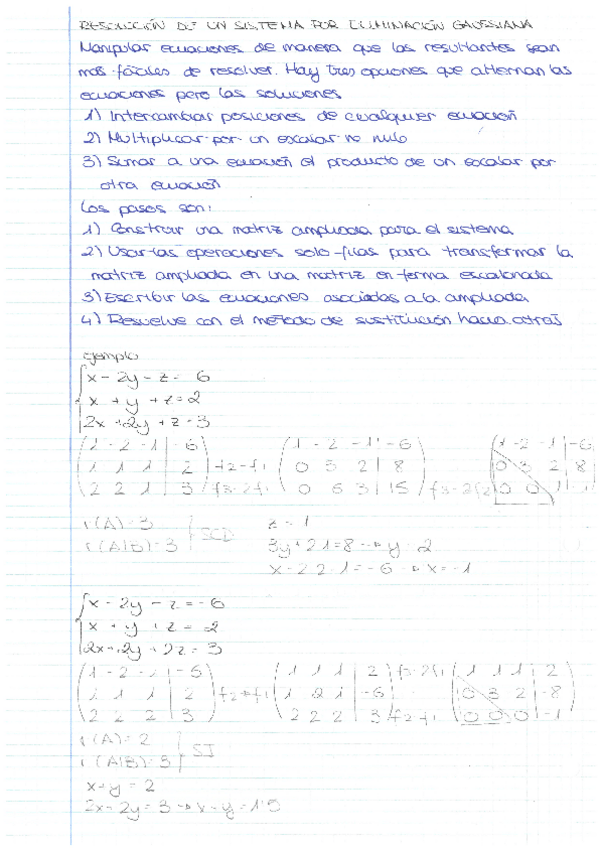 RESOLUCIÓN DE UN SISTEMA POR ELIMINACIÓN GAUSSIANA
Manipular ecuaciones de manera que las resultantes sean
más fáciles de resolver. Hay tres opciones que alternan las
ecuaciones pero las soluciones
1) Intercambiar posiciones de cualquier ecuación
2) Multiplicar por un escalar no nulo
3) Sumar a una ecuación el producto de un escalar por
otra ecuación
Los pasos son:
1) Construir una matriz ampliada para el sistema
2) Usar las operaciones solo filas para transformar la
matriz ampliada en una matriz en forma escalonada
3) Escribir las ecuaciones asociadas a la ampliada
4) Resuelve con el método de sustitución hacia atrás
ejemplo
x - 2y - z = 6
x + y + z = 2
2x + 2y + z = 3
(1 -2 -1 | -6) (1 -2 -1 | -6) (1 -2 -1 | -6)
1 1 1 | 2 f2-f1 0 3 2 | 8 0 3 2 | 8
2 2 1 | 3 f3-2f1 0 6 3 | 15 f3-2f2 0 0 -1 | -1
r(A)=3 z=1
r(A|B)=3 SCD 3y+2·1=8 → y=2
x-2·2-1=-6 → x=-1
x - 2y - z = -6
x + y + z = 2
2x + 2y + 2z = 3
1 1 1 | 2
2 2 2 | 3
0 3 2 | -8
0 0 0 | -1
r(A)=2
r(A|B)=3 SI
x+y = 2